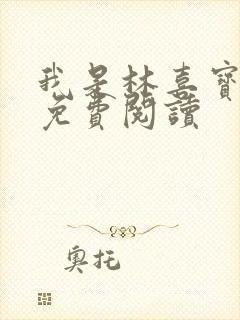 我是林喜寶
免費閱讀
奧托